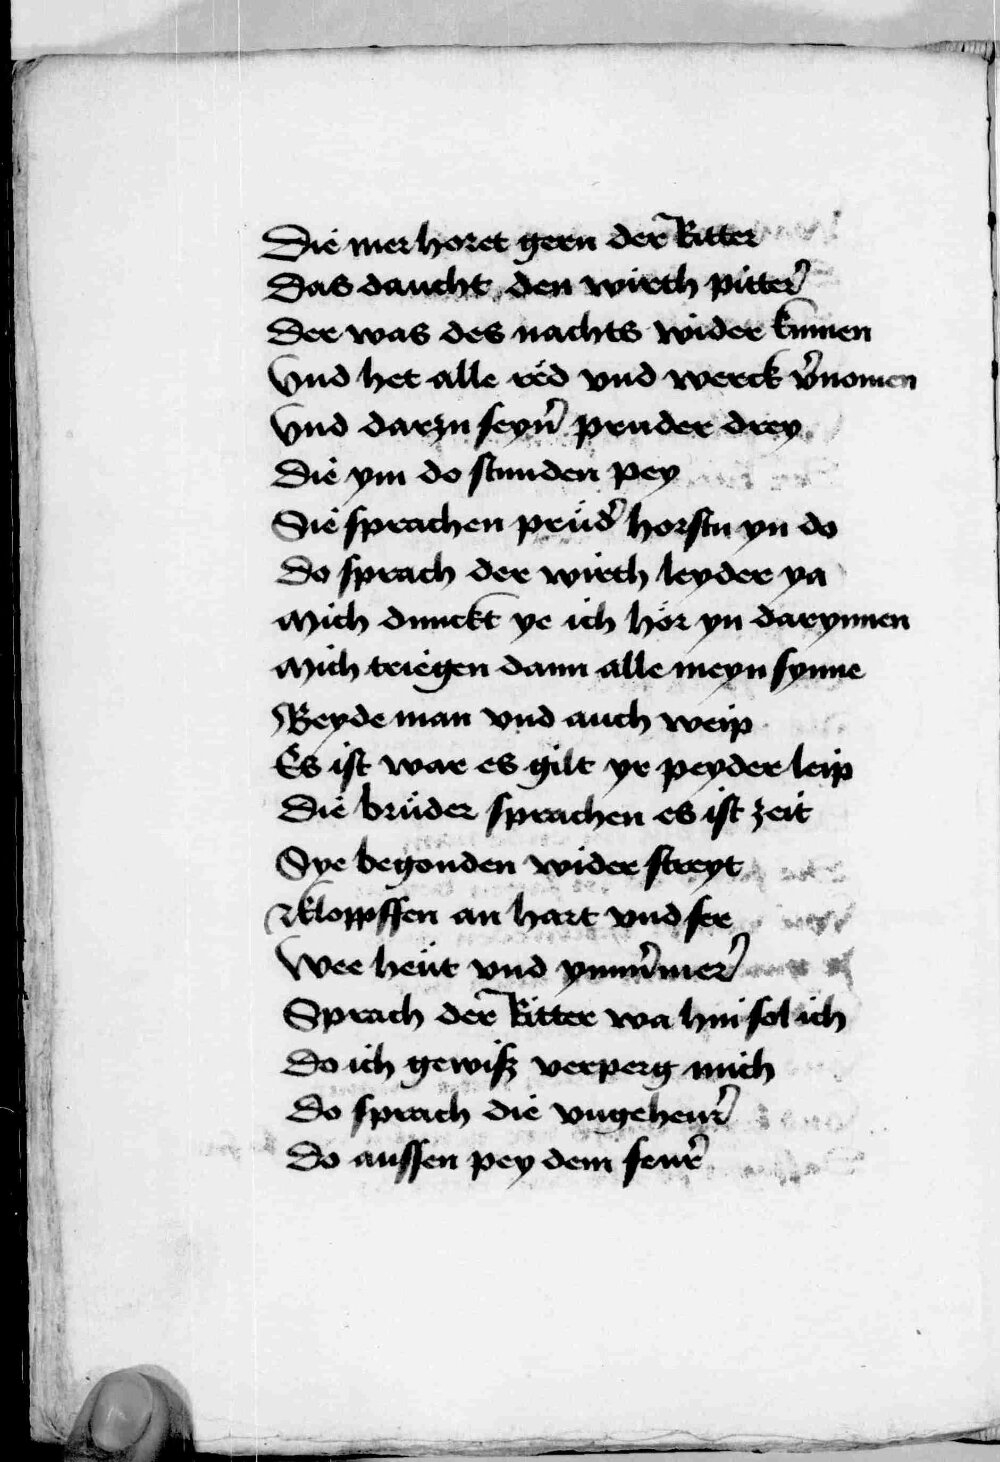 Die mer horet gern der Ritter
Das daucht den wirth pitter̉
Der was des nachts wider kumen
Vnd het alle red vnd werck v̉nomen
Vnd darzu seyn̉ pruder drey
Die ym do stunden pey
Sie sprachen prüd̉ horstu yn do
Do sprach der wirth leyder ya
Mich dunckt ye ich hör yn darynnen
Mich triegen dann alle meyn synne
Beyde man vnd auch weip
Es ist war es gilt yr peyder leip
Die brüder sprachen es ist zeit
Sye begonden wider streyt
Kloppffen an hart vnd ser
Wee heüt vnd ymm̉mer̉
Sprach der Ritter wa hin sol ich
Do ich gewisz verperg mich
Do sprach die vngeheur̉
Do aussen pey dem feur̉